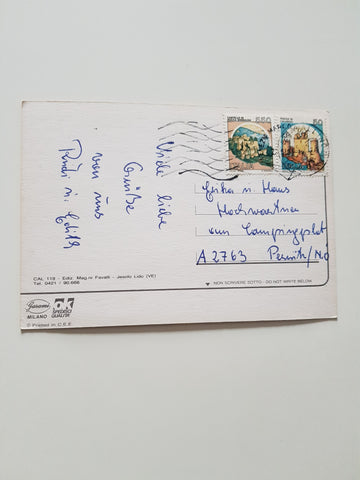 Viele liebe
Grüße
von uns
Rudi u. Edith
550
50
u. Hans
Hochwartner
am Campingplatz
A 2763 Pernitz/NÖ
CAL 118 - Ediz. Mag.nr Favatti - Jesolo Lido (VE)
Tel. 0421 / 90.666
▼ NON SCRIVERE SOTTO - DO NOT WRITE BELOW
Garami
MILANO
OK
SPEDISCI
QUALITA'
© Printed in C.E.E.